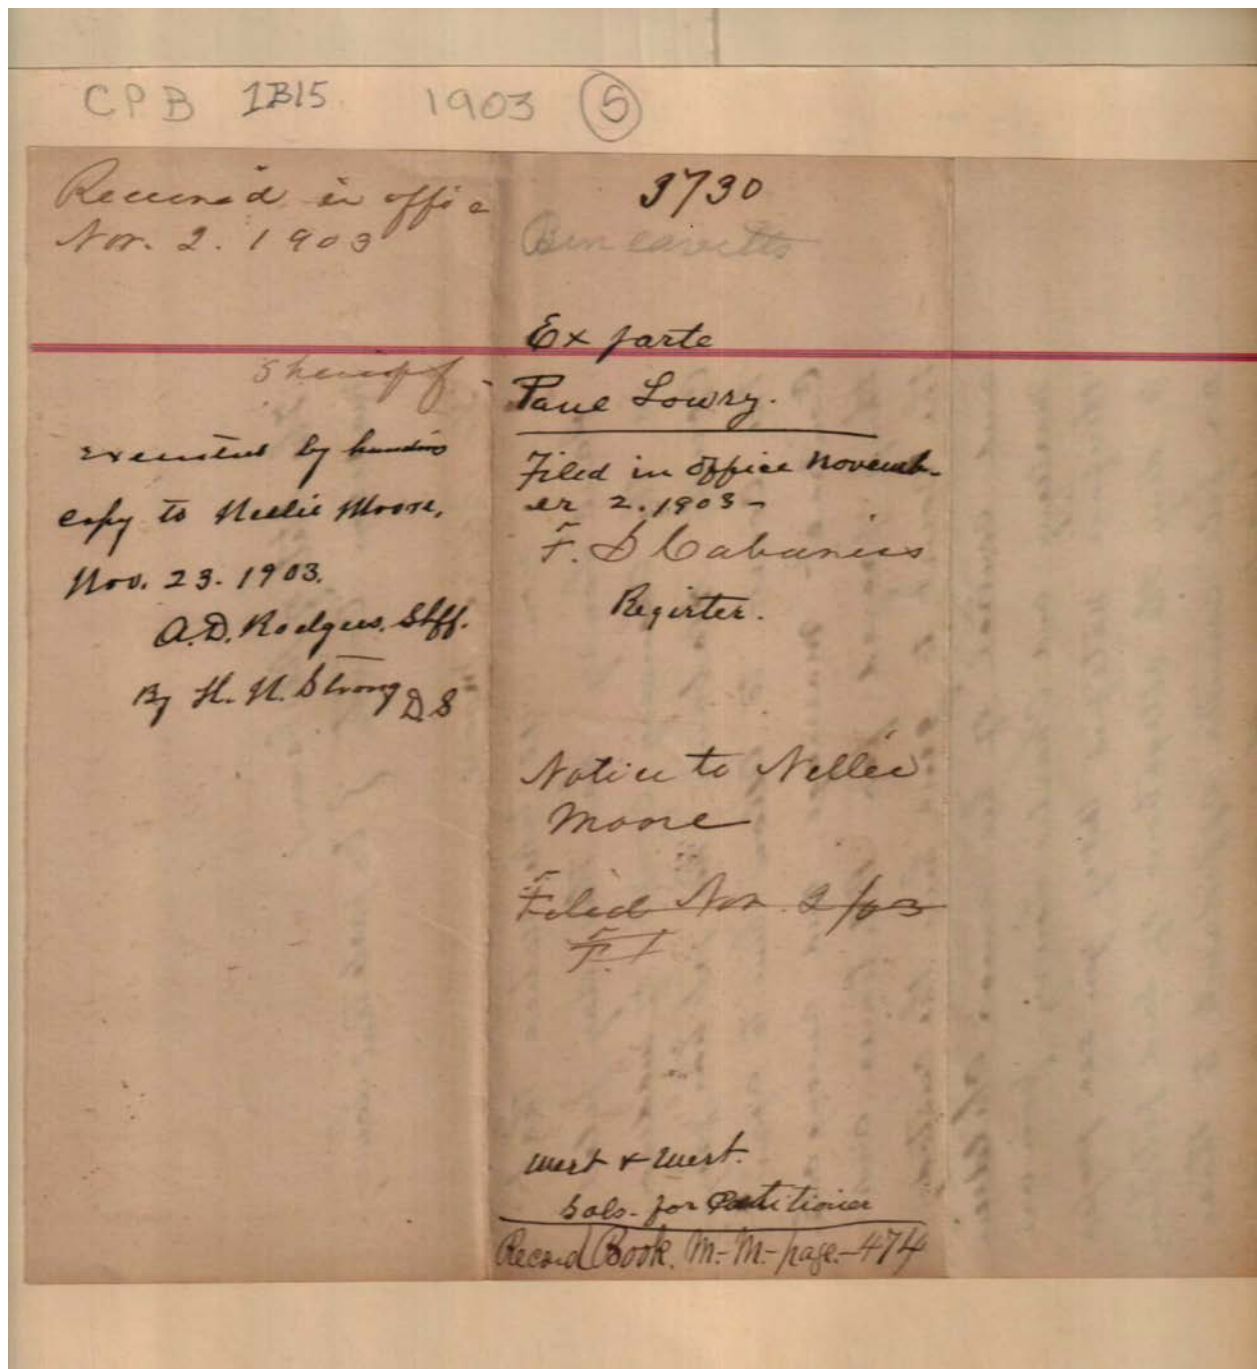 CPB 1B15 1903 5
Received in office
Nov. 2. 1903
Sheriff
executed by handing
copy to Nellie Moore,
Nov. 23. 1903.
A.D. Rodgers, Shff.
By H. N. Strong D.S
3730
Ex parte
Paul Lowry.
Filed in office Novemb-
er 2. 1903-
F. D Cabaniss
Register.
Notice to Nellie
Moore
Filed Nov. 2/03
F.
West & West.
Sols- for Petitioner
Record Book. M.-M.- page.-474